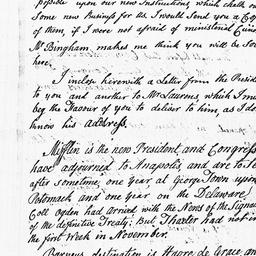 possible upon our new Instructions, which chalk ou
Some new Business for Us. I would Send you a Cop
of them, if I were not afraid of ministerial Curio
Mr Bingham, makes me think you will be Soo
here.
I inclose herewith a Letter from the Preside
to you and another to Mr Laurens which I mu
beg the Favour of you to deliver to him, as I do
know his address.
Mifflin is the new President and Congress
have adjourned to Anapolis, and are to Se
after sometime, one year at George Town upon
Potomack and one year on the Delaware.
Coll Ogden had arrived with the News of the Signat
of the definitive Treaty; But Thaxter had not in
the first Week in November.
Barneys destination is Havre de Grace, an